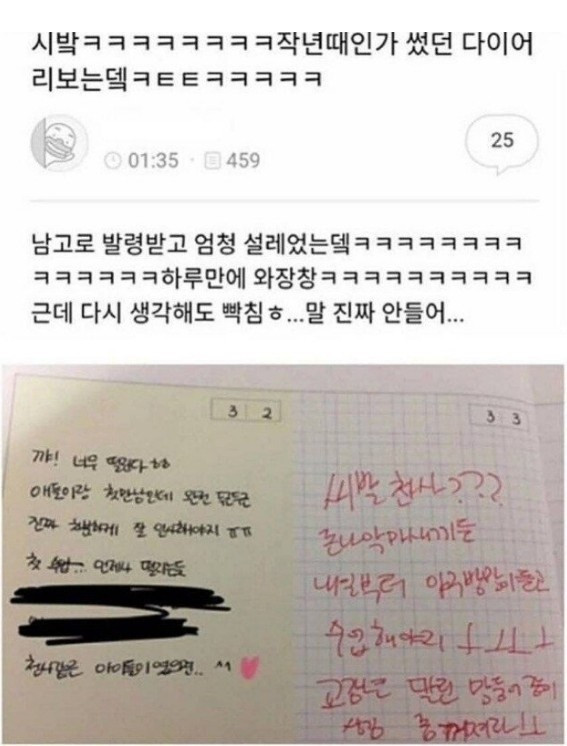 시발ㅋㅋㅋㅋㅋㅋㅋㅋ작년때인가 썼던 다이어
리보는뎈ㅋㅌㅌㅋㅋㅋㅋㅋ
01:35 · 459
25
남고로 발령받고 엄청 설레었는뎈ㅋㅋㅋㅋㅋㅋㅋ
ㅋㅋㅋㅋㅋㅋ하루만에 와장창ㅋㅋㅋㅋㅋㅋㅋㅋㅋㅋ
근데 다시 생각해도 빡침ㅎ...말 진짜 안들어...
3 2
꺄! 너무 떨린다 ㅎㅎ
애들이랑 첫만남인데 완전 두근두근
진짜 차분하게 잘 인사해야지 ㅠㅠ
첫 수업... 언제나 떨리는듯
천사같은 아이들이였으면.. ^^
3 3
씨발 천사???
존나 악마새끼들
내일부터 야구방망이들고
수업해야리
고정은 말린 망둥어 종이